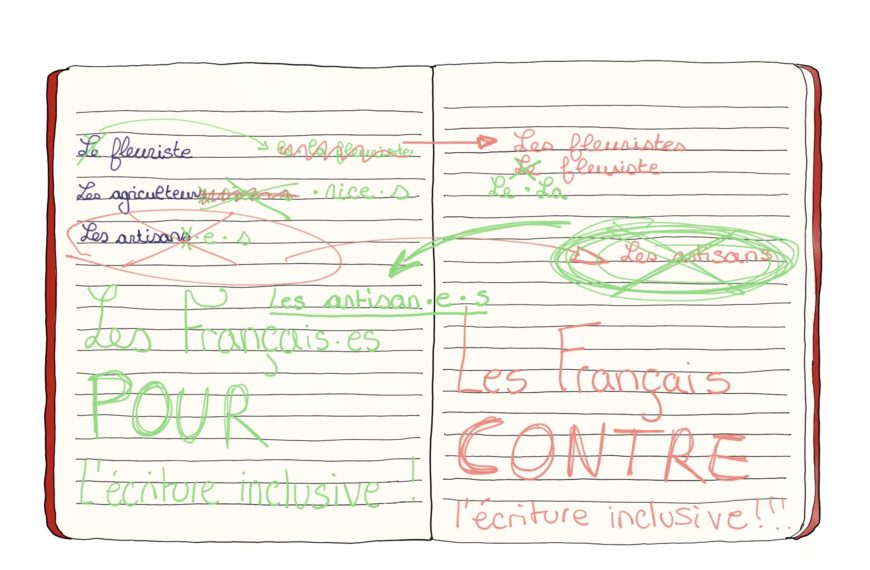 Le fleuriste
Les agriculteurs
·rice·s
Les artisans
·e·s
Les artisan·e·s
Les Français·es
POUR
L'écriture inclusive !
Les fleuristes
Le fleuriste
Le·La
Les artisans
Les Français
CONTRE
l'écriture inclusive!!!